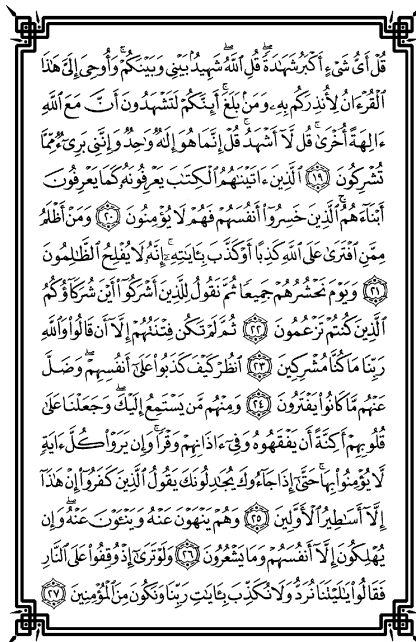 قُلْ أَىُّ شَىْءٍ أَكْبَرُ شَهَٰدَةً ۖ قُلِ ٱللَّهُ ۖ شَهِيدٌۢ بَيْنِى وَبَيْنَكُمْ ۚ وَأُوحِىَ إِلَىَّ هَٰذَا
ٱلْقُرْءَانُ لِأُنذِرَكُم بِهِۦ وَمَنۢ بَلَغَ ۚ أَئِنَّكُمْ لَتَشْهَدُونَ أَنَّ مَعَ ٱللَّهِ
ءَالِهَةً أُخْرَىٰ ۚ قُل لَّآ أَشْهَدُ ۚ قُلْ إِنَّمَا هُوَ إِلَٰهٌ وَٰحِدٌ وَإِنَّنِى بَرِىٓءٌ مِّمَّا
تُشْرِكُونَ ١٩ ٱلَّذِينَ ءَاتَيْنَٰهُمُ ٱلْكِتَٰبَ يَعْرِفُونَهُۥ كَمَا يَعْرِفُونَ
أَبْنَآءَهُمُ ۘ ٱلَّذِينَ خَسِرُوٓا۟ أَنفُسَهُمْ فَهُمْ لَا يُؤْمِنُونَ ٢٠ وَمَنْ أَظْلَمُ
مِمَّنِ ٱفْتَرَىٰ عَلَى ٱللَّهِ كَذِبًا أَوْ كَذَّبَ بِـَٔايَٰتِهِۦٓ ۗ إِنَّهُۥ لَا يُفْلِحُ ٱلظَّٰلِمُونَ
٢١ وَيَوْمَ نَحْشُرُهُمْ جَمِيعًا ثُمَّ نَقُولُ لِلَّذِينَ أَشْرَكُوٓا۟ أَيْنَ شُرَكَآؤُكُمُ
ٱلَّذِينَ كُنتُمْ تَزْعُمُونَ ٢٢ ثُمَّ لَمْ تَكُن فِتْنَتُهُمْ إِلَّآ أَن قَالُوا۟ وَٱللَّهِ
رَبِّنَا مَا كُنَّا مُشْرِكِينَ ٢٣ ٱنظُرْ كَيْفَ كَذَبُوا۟ عَلَىٰٓ أَنفُسِهِمْ ۚ وَضَلَّ
عَنْهُم مَّا كَانُوا۟ يَفْتَرُونَ ٢٤ وَمِنْهُم مَّن يَسْتَمِعُ إِلَيْكَ ۖ وَجَعَلْنَا عَلَىٰ
قُلُوبِهِمْ أَكِنَّةً أَن يَفْقَهُوهُ وَفِىٓ ءَاذَانِهِمْ وَقْرًا ۚ وَإِن يَرَوْا۟ كُلَّ ءَايَةٍ
لَّا يُؤْمِنُوا۟ بِهَا ۚ حَتَّىٰٓ إِذَا جَآءُوكَ يُجَٰدِلُونَكَ يَقُولُ ٱلَّذِينَ كَفَرُوٓا۟ إِنْ هَٰذَآ
إِلَّآ أَسَٰطِيرُ ٱلْأَوَّلِينَ ٢٥ وَهُمْ يَنْهَوْنَ عَنْهُ وَيَنْـَٔوْنَ عَنْهُ ۖ وَإِن
يُهْلِكُونَ إِلَّآ أَنفُسَهُمْ وَمَا يَشْعُرُونَ ٢٦ وَلَوْ تَرَىٰٓ إِذْ وُقِفُوا۟ عَلَى ٱلنَّارِ
فَقَالُوا۟ يَٰلَيْتَنَا نُرَدُّ وَلَا نُكَذِّبَ بِـَٔايَٰتِ رَبِّنَا وَنَكُونَ مِنَ ٱلْمُؤْمِنِينَ ٢٧